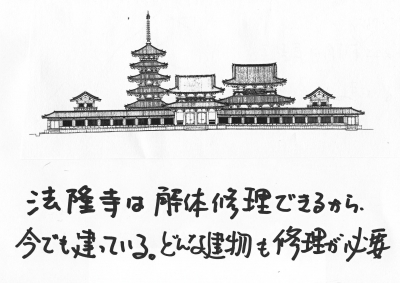 法隆寺は解体修理できるから、
今でも建っている。どんな建物も修理が必要